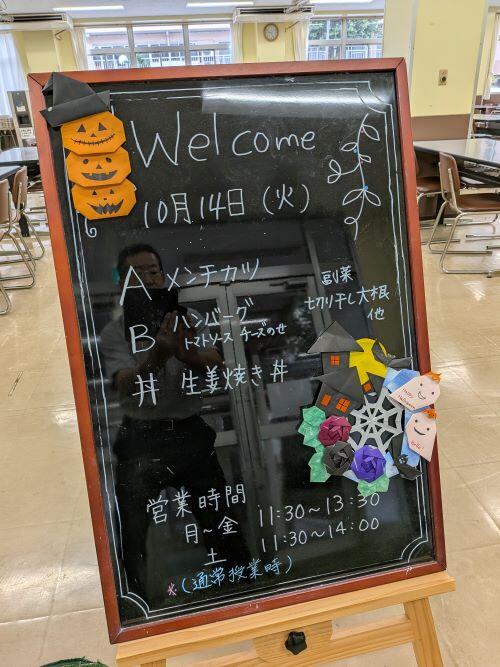 Welcome
10月14日（火）
A メンチカツ
B ハンバーグ
トマトソース チーズのせ
丼 生姜焼き丼
副菜
切り干し大根
他
Happy
Halloween
営業時間
月～金 11:30～13:30
土 11:30～14:00
*（通常授業時）